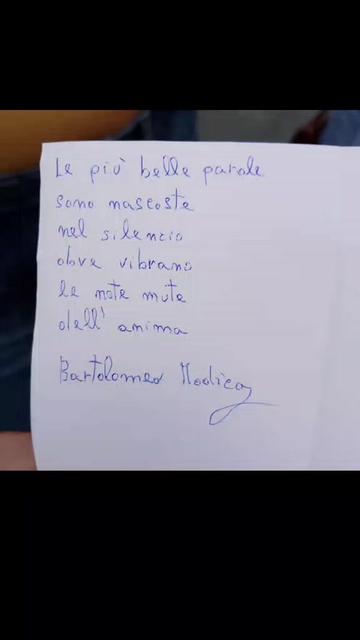 Le più belle parole
sono nascoste
nel silenzio
dove vibrano
le note mute
dell'anima
Bartolomeo Modica